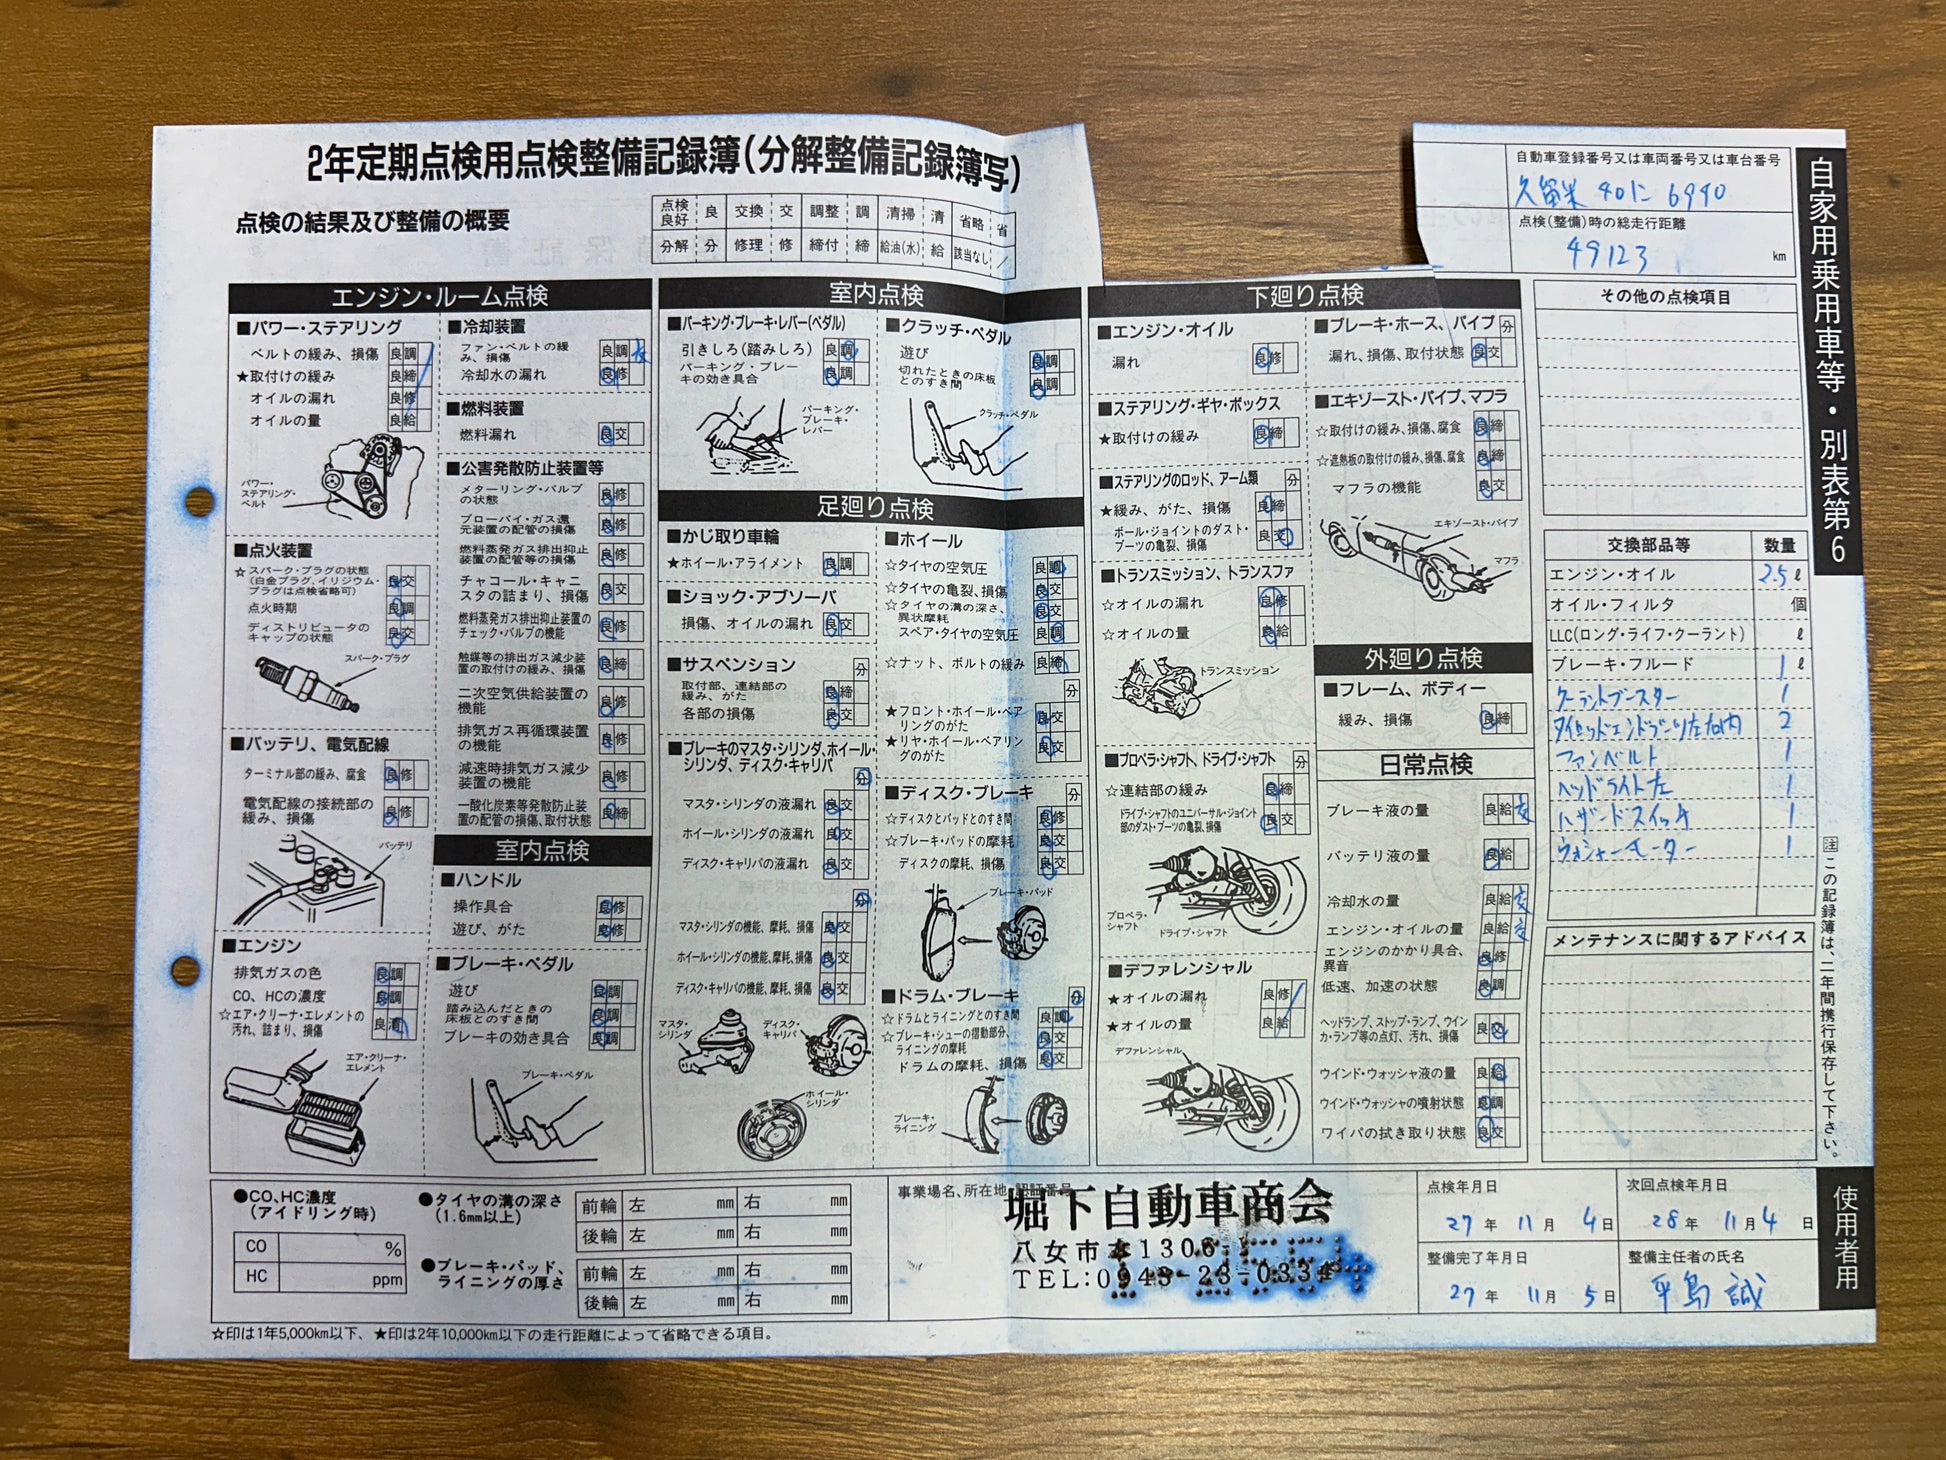 2年定期点検用点検整備記録簿(分解整備記録簿写)
点検の結果及び整備の概要
点検良好 良 交換 交 調整 調 清掃 清 省略 省
分解 分 修理 修 締付 締 給油(水) 給 該当なし /
自動車登録番号又は車両番号又は車台番号
久留米 40に 6940
点検(整備)時の総走行距離
49123 km
自家用乗用車等・別表第6
エンジン・ルーム点検
■パワー・ステアリング
ベルトの緩み、損傷 良 調
★取付けの緩み 良 締
オイルの漏れ 良 修
オイルの量 良 給
パワー・ステアリング・ベルト
■点火装置
☆スパーク・プラグの状態 良 交
(白金プラグ、イリジウム・プラグは点検省略可)
点火時期 良 調
ディストリビュータのキャップの状態 良 交
スパーク・プラグ
■バッテリ、電気配線
ターミナル部の緩み、腐食 良 修
電気配線の接続部の緩み、損傷 良 修
バッテリ
■エンジン
排気ガスの色 良 調
CO、HCの濃度 良 調
☆エア・クリーナ・エレメントの汚れ、詰まり、損傷 良 清
エア・クリーナ・エレメント
■冷却装置
ファン・ベルトの緩み、損傷 良 調 交
冷却水の漏れ 良 修
■燃料装置
燃料漏れ 良 交
■公害発散防止装置等
メターリング・バルブの状態 良 修
ブローバイ・ガス還元装置の配管の損傷 良 修
燃料蒸発ガス排出抑止装置の配管等の損傷 良 修
チャコール・キャニスタの詰まり、損傷 良 交
燃料蒸発ガス排出抑止装置のチェック・バルブの機能 良 修
触媒等の排出ガス減少装置の取付けの緩み、損傷 良 締
二次空気供給装置の機能 良 修
排気ガス再循環装置の機能 良 修
減速時排気ガス減少装置の機能 良 修
一酸化炭素等発散防止装置の配管の損傷、取付状態 良 締
室内点検
■ハンドル
操作具合 良 修
遊び、がた 良 修
■ブレーキ・ペダル
遊び 良 調
踏み込んだときの床板とのすき間 良 調
ブレーキの効き具合 良 調
ブレーキ・ペダル
室内点検
■パーキング・ブレーキ・レバー(ペダル)
引きしろ(踏みしろ) 良 調
パーキング・ブレーキの効き具合 良 調
パーキング・ブレーキ・レバー
■クラッチ・ペダル
遊び 良 調
切れたときの床板とのすき間 良 調
クラッチ・ペダル
足廻り点検
■かじ取り車輪
★ホイール・アライメント 良 調
■ショック・アブソーバ
損傷、オイルの漏れ 良 交
■サスペンション 分
取付部、連結部の緩み、がた 良 締
各部の損傷 良 交
■ブレーキのマスタ・シリンダ、ホイール・シリンダ、ディスク・キャリパ 分
マスタ・シリンダの液漏れ 良 交
ホイール・シリンダの液漏れ 良 交
ディスク・キャリパの液漏れ 良 交
分
マスタ・シリンダの機能、摩耗、損傷 良 交
ホイール・シリンダの機能、摩耗、損傷 良 交
ディスク・キャリパの機能、摩耗、損傷 良 交
マスタ・シリンダ
ディスク・キャリパ
ホイール・シリンダ
■ホイール
☆タイヤの空気圧 良 調
☆タイヤの亀裂、損傷 良 交
☆タイヤの溝の深さ、異状摩耗 良 交
スペア・タイヤの空気圧 良 調
☆ナット、ボルトの緩み 良 締
分
★フロント・ホイール・ベアリングのがた 良 交
★リヤ・ホイール・ベアリングのがた 良 交
■ディスク・ブレーキ 分
☆ディスクとパッドとのすき間 良 修
☆ブレーキ・パッドの摩耗 良 交
ディスクの摩耗、損傷 良 交
ブレーキ・パッド
■ドラム・ブレーキ 分
☆ドラムとライニングとのすき間 良 調
☆ブレーキ・シューの摺動部分、ライニングの摩耗 良 交
ドラムの摩耗、損傷 良 交
ブレーキ・ライニング
下廻り点検
■エンジン・オイル
漏れ 良 修
■ステアリング・ギヤ・ボックス
★取付けの緩み 良 締
■ステアリングのロッド、アーム類 分
★緩み、がた、損傷 良 締
ボール・ジョイントのダスト・ブーツの亀裂、損傷 良 交
■トランスミッション、トランスファ
☆オイルの漏れ 良 修
☆オイルの量 良 給
トランスミッション
■プロペラ・シャフト、ドライブ・シャフト 分
☆連結部の緩み 良 締
ドライブ・シャフトのユニバーサル・ジョイント部のダスト・ブーツの亀裂、損傷 良 交
プロペラ・シャフト
ドライブ・シャフト
■デファレンシャル
★オイルの漏れ 良 修
★オイルの量 良 給
デファレンシャル
■ブレーキ・ホース、パイプ 分
漏れ、損傷、取付状態 良 交
■エキゾースト・パイプ、マフラ
☆取付けの緩み、損傷、腐食 良 締
☆遮熱板の取付けの緩み、損傷、腐食 良 締
マフラの機能 良 交
エキゾースト・パイプ
マフラ
外廻り点検
■フレーム、ボディー
緩み、損傷 良 締
日常点検
ブレーキ液の量 良 給 交
バッテリ液の量 良 給
冷却水の量 良 給 交
エンジン・オイルの量 良 給 交
エンジンのかかり具合、異音 良 修
低速、加速の状態 良 調
ヘッドランプ、ストップ・ランプ、ウインカ・ランプ等の点灯、汚れ、損傷 良 交
ウインド・ウォッシャ液の量 良 給
ウインド・ウォッシャの噴射状態 良 調
ワイパの拭き取り状態 良 交
その他の点検項目
交換部品等 数量
エンジン・オイル 2.5 ℓ
オイル・フィルタ 個
LLC(ロング・ライフ・クーラント) ℓ
ブレーキ・フルード 1 ℓ
クーラントブースター 1
タイロッドエンドブーツ左右内 2
ファンベルト 1
ヘッドライト左 1
ハザードスイッチ 1
ウォシャーモーター 1
メンテナンスに関するアドバイス
注 この記録簿は、二年間携行保存して下さい。
●CO、HC濃度(アイドリング時)
CO %
HC ppm
●タイヤの溝の深さ(1.6mm以上)
前輪 左 mm 右 mm
後輪 左 mm 右 mm
●ブレーキ・パッド、ライニングの厚さ
前輪 左 mm 右 mm
後輪 左 mm 右 mm
事業場名、所在地、認証番号
堀下自動車商会
八女市 1306
TEL:0943-23-033
点検年月日
27年 11月 4日
次回点検年月日
28年 11月 4日
整備完了年月日
27年 11月 5日
整備主任者の氏名
平島 誠
使用者用
☆印は1年5,000km以下、★印は2年10,000km以下の走行距離によって省略できる項目。